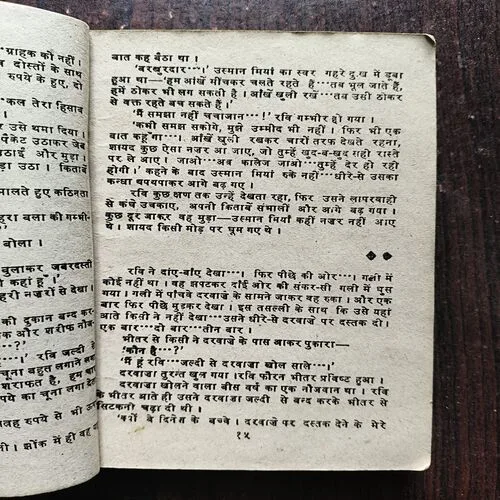 ग्राहक को नहीं।
दोस्तों के साथ
रुपये के हुए, दो
-कल तेरा हिसाब
उसे थमा दिया।
पैकेट उठाकर जेब
उठाईं और मुड़ा।
उठा। किताबें
मालते हुए कठिनता
हरा बला की गम्भी-
बोला।
बुलाकर जबरदस्ती
कहां हूं।'
हरी नजरों से देखा।
की दूकान बन्द कर-
और शरीफ नौज-
रवि जल्दी के
चूना बहुत लगाने
शराफत है, हम
का चूना लगा देता
सत्रह रुपये से भी ऊप
। झोंक में ही वह
बात कह बैठा था।
'बरखुरदार···।' उस्मान मियां का स्वर गहरे दुःख में डूबा
हुआ था—'हम आँखें मींचकर चलते रहते हैं···तब भूल जाते हैं,
हमें ठोकर भी लग सकती है। आँखें खुली रखें···तब उसी ठोकर
से वक्त रहते बच सकते हैं।'
'मैं समझा नहीं चचाजान···!' रवि गम्भीर हो गया।
'कभी समझ सकोगे, मुझे उम्मीद भी नहीं। फिर भी एक
बात कहूंगा। आँखें खुली रखकर चारों तरफ देखते रहना,
शायद कुछ ऐसा नजर आ जाए, जो तुम्हें खुद-ब-खुद सही रास्ते
पर ले आए। जाओ···अब कालेज जाओ···तुम्हें देर हो रही
होगी।' कहने के बाद उस्मान मियां रुके नहीं···धीरे-से उसका
कन्धा थपथपाकर आगे बढ़ गए।
रवि कुछ क्षण तक उन्हें देखता रहा, फिर उसने लापरवाही
से कंधे उचकाए, अपनी किताबें संभालीं और आगे बढ़ गया।
कुछ दूर जाकर वह मुड़ा—उस्मान मियां कहीं नजर नहीं आए
थे। शायद किसी मोड़ पर घूम गए थे।
◆◆
रवि ने दाएं-बाएं देखा···। फिर पीछे की ओर···। गली में
कोई नहीं था। वह झपटकर दाईं ओर की संकर-सी गली में घुस
गया। गली में पांचवें दरवाजे के सामने जाकर वह रुका। और एक
बार फिर पीछे मुड़कर देखा। इस तसल्ली के साथ कि उसे यहां
आते किसी ने नहीं देखा···उसने धीरे-से दरवाजे पर दस्तक दी।
एक बार···दो बार···तीन बार।
भीतर से किसी ने दरवाजे के पास आकर पुकारा—
'कौन है···?'
'मैं हूं रवि···जल्दी से दरवाजा खोल साले···।'
दरवाजा तुरन्त खुल गया। रवि फौरन भीतर प्रविष्ट हुआ।
दरवाजा खोलने वाला बीस वर्ष का एक नौजवान था। रवि
के भीतर आते ही उसने दरवाजा जल्दी से बन्द करके भीतर से
सिटकनी चढ़ा दी थी।
'क्यों बे दिनेश के बच्चे। दरवाजे पर दस्तक देने के मेरे
१५